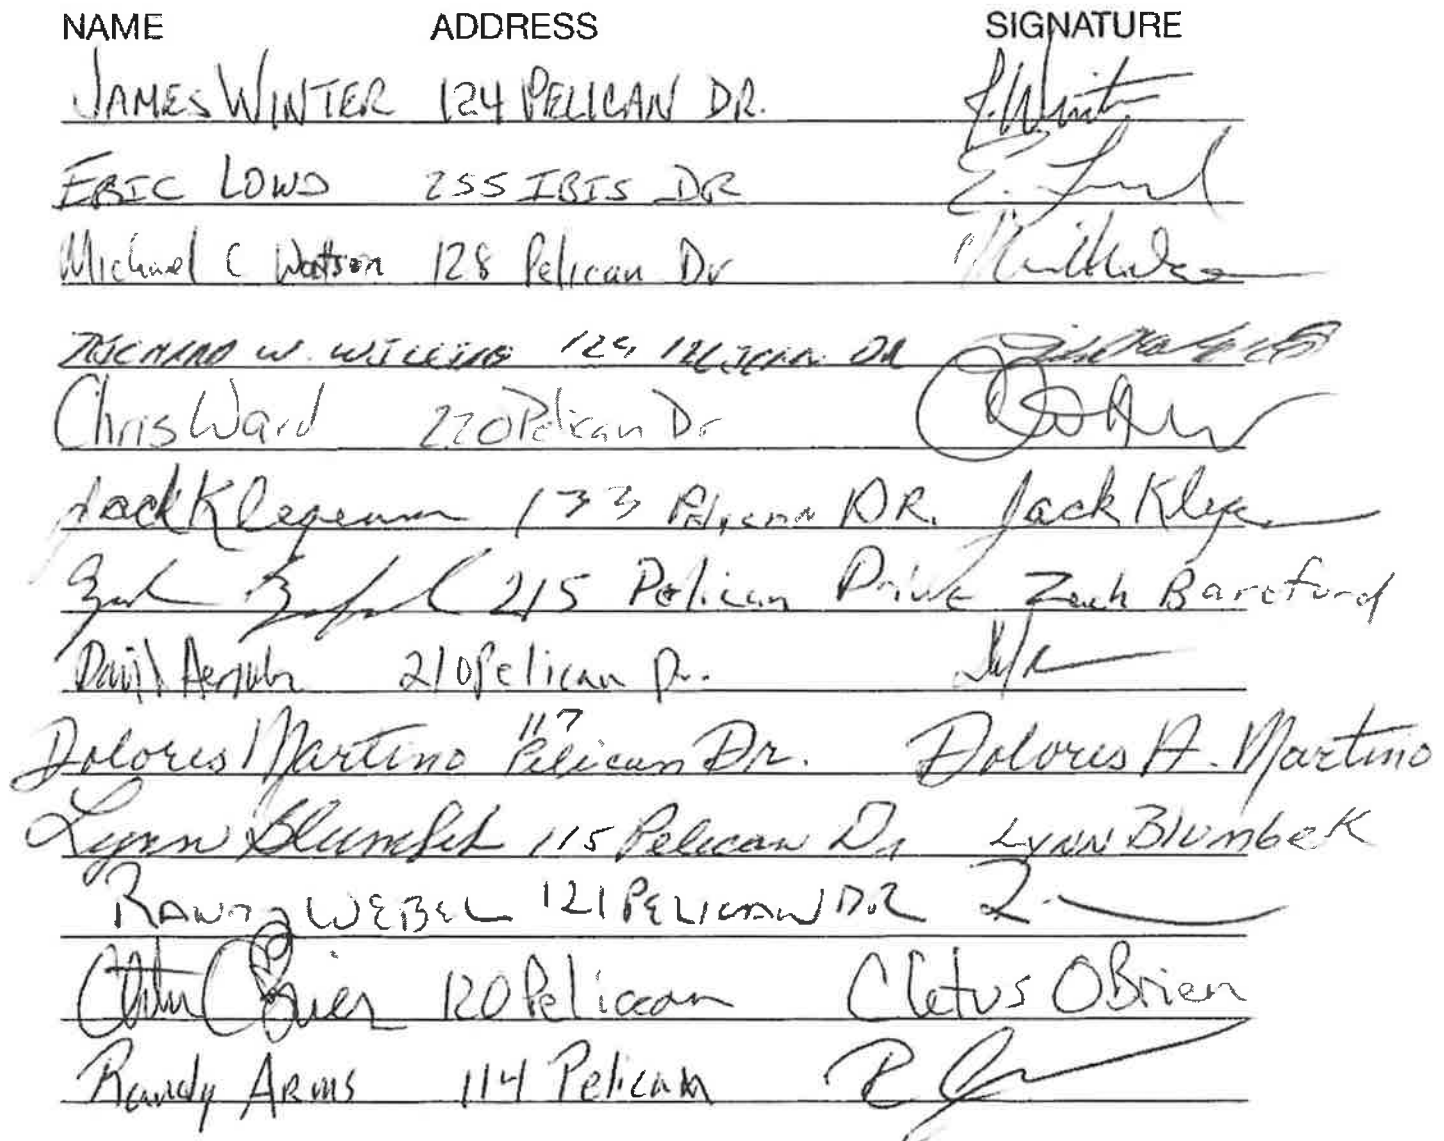 NAME ADDRESS SIGNATURE
JAMES WINTER 124 PELICAN DR. J. Winter
ERIC LOWD 255 IBIS DR E. Lowd
Michael C Wattson 128 Pelican Dr
RICHARD W. DR
Chris Ward 220 Pelican Dr
Jack 133 Pelican DR. Jack
215 Pelican Drive Zach Bareford
David 210 Pelican Dr.
Dolores Martino 117 Pelican Dr. Dolores A. Martino
Lynn Blumbek 115 Pelican Dr Lynn Blumbek
RANDY WEBEL 121 PELICAN DR
OBrien 120 Peliccan Cletus OBrien
Randy ARMS 114 Pelican